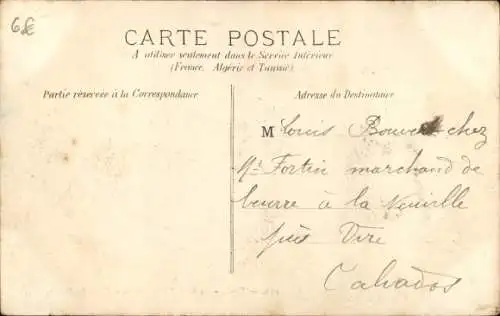 6€
CARTE POSTALE
A utiliser seulement dans le Service Intérieur
(France, Algérie et Tunisie)
Partie réservée à la Correspondance
Adresse du Destinataire
M Louis Bouvet chez
Mr Fortin marchand de
beurre à la Neuville
près Vire
Calvados